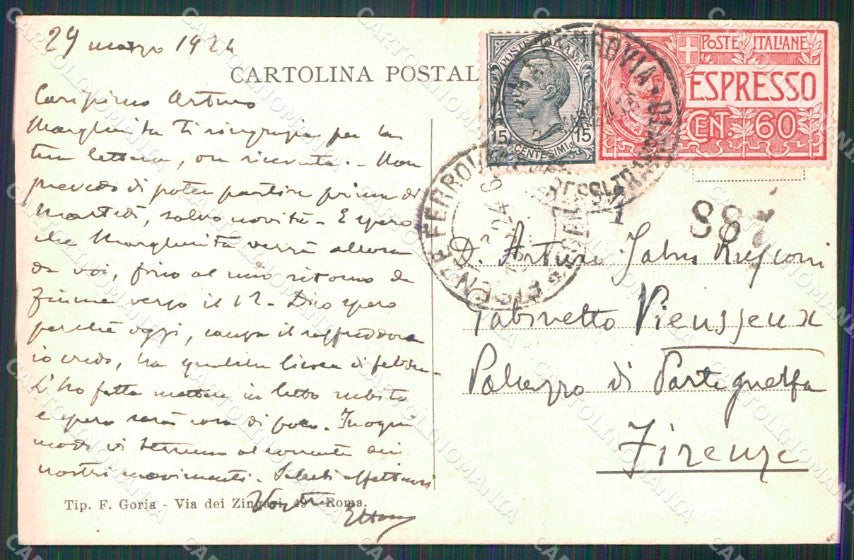 29 marzo 1924
CARTOLINA POSTAL
Carissimo Arturo
Margherita ti ringrazia per la
tua lettera, ora ricevuta. - Non
prevedo di poter partire prima di
Martedì, salvo novità. - E spero
che Margherita verrà allora
da voi, fino al mio ritorno da
Fiume verso il 12 - Dico spero
perchè oggi, causa il raffreddore
io credo, ha qualche linea di febbre.
L'ho fatta mettere in letto subito
e spero sarà cosa di poco. In ogni
modo vi terremo al corrente dei
nostri movimenti. Saluti affettuosi
Vostro
Ettore
Tip. F. Goria - Via dei Zingari, 49 - Roma.
POSTE ITALIANE
15 CENTESIMI 15
POSTE ITALIANE
ESPRESSO
CENT. 60
FIRENZE FERROVIA
887
Arturo Jahn Rusconi
Gabinetto Vieusseux
Palazzo di Parte guelfa
Firenze
CARTOLINOMANIA